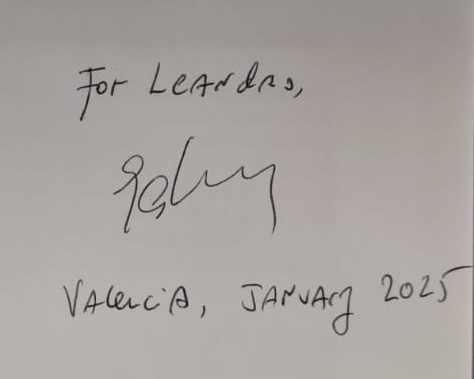 For Leandro,
Valencia, January 2025